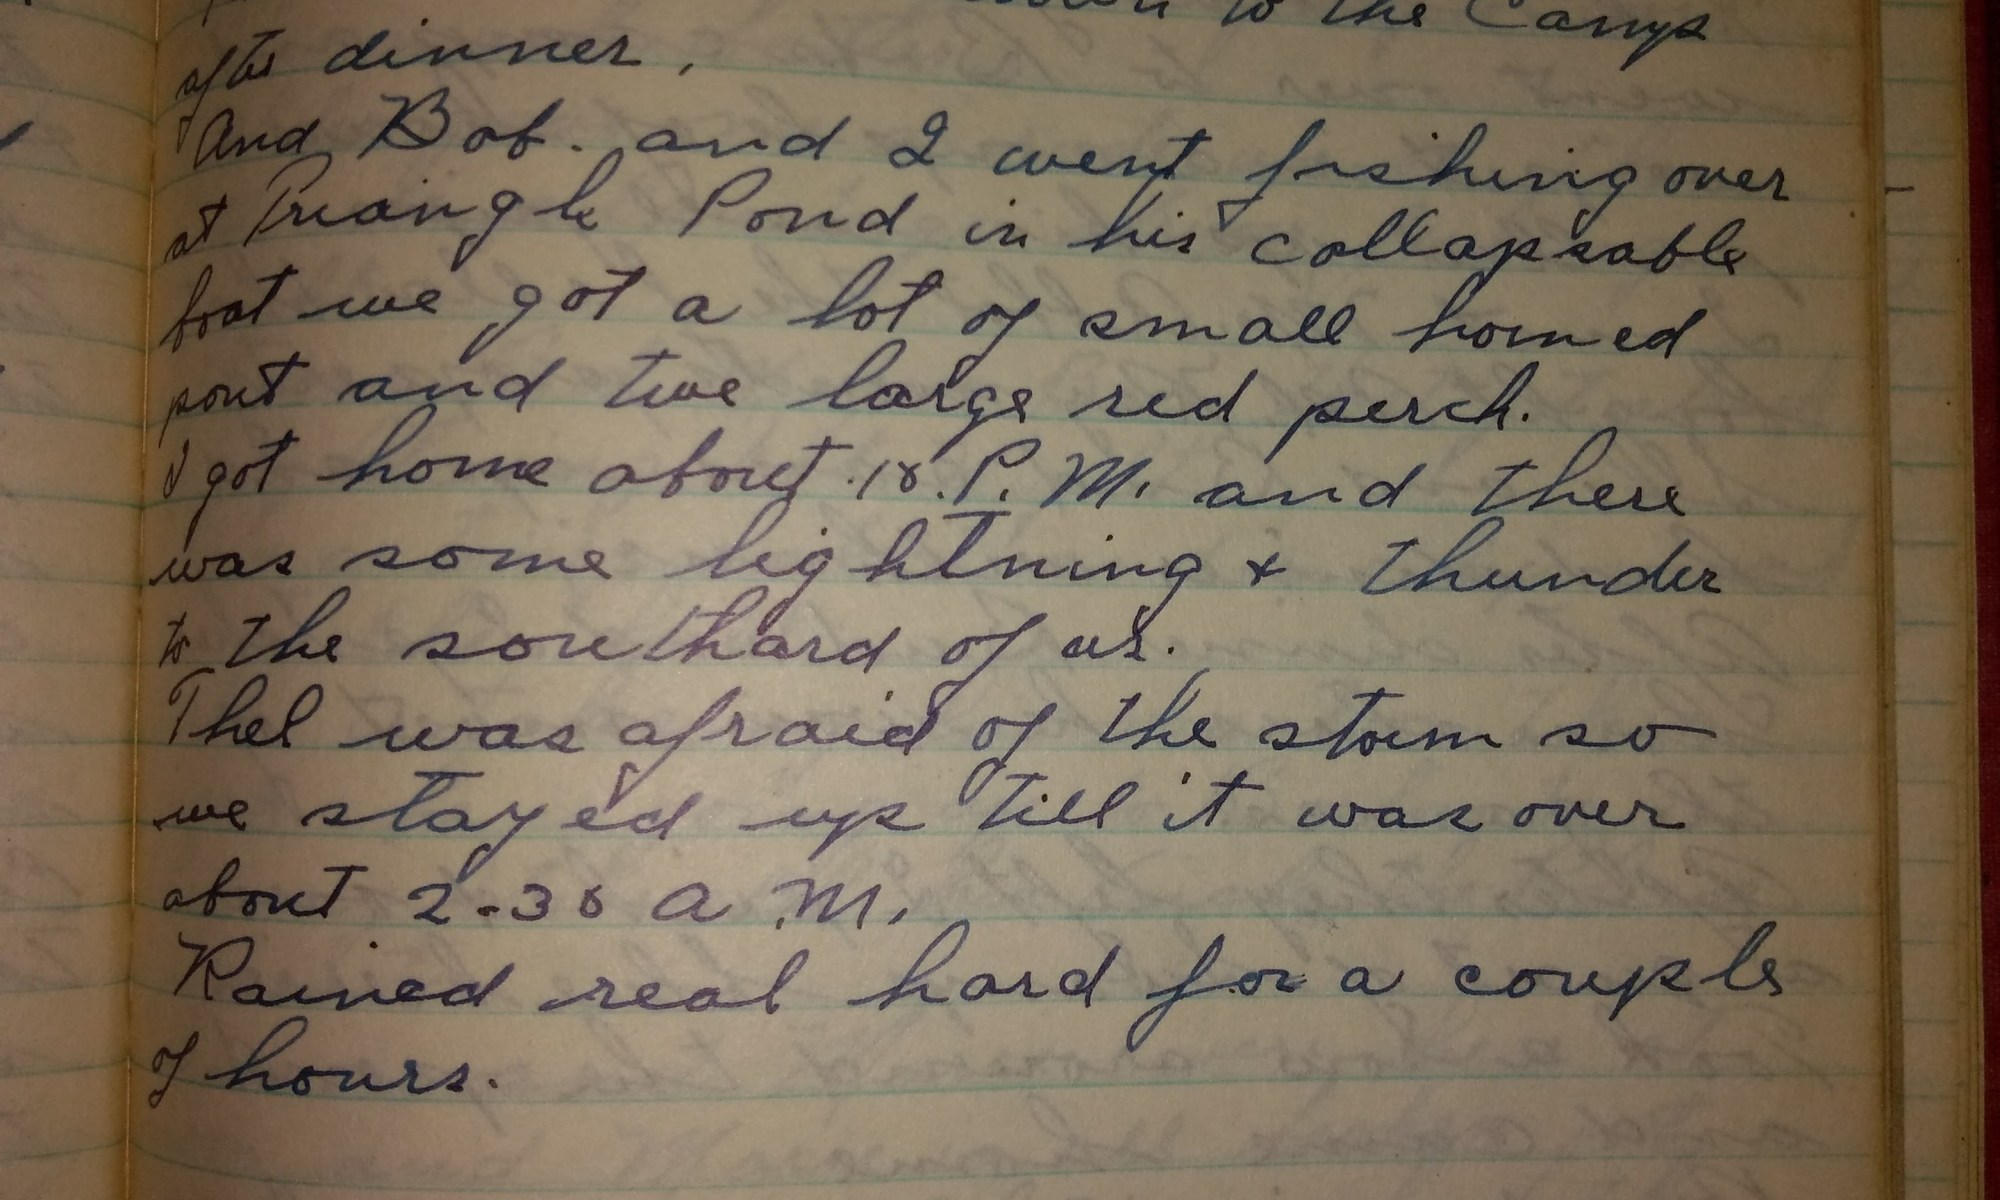 to the Camp
after dinner,
And Bob. and I went fishing over
at Triangle Pond in his collapsable
boat we got a lot of small horned
pout and two large red perch.
I got home about 10. P. M. and there
was some lightning & thunder
to the southard of us.
Thel was afraid of the storm so
we stayed up till it was over
about 2-30 A M.
Rained real hard for a couple
of hours.